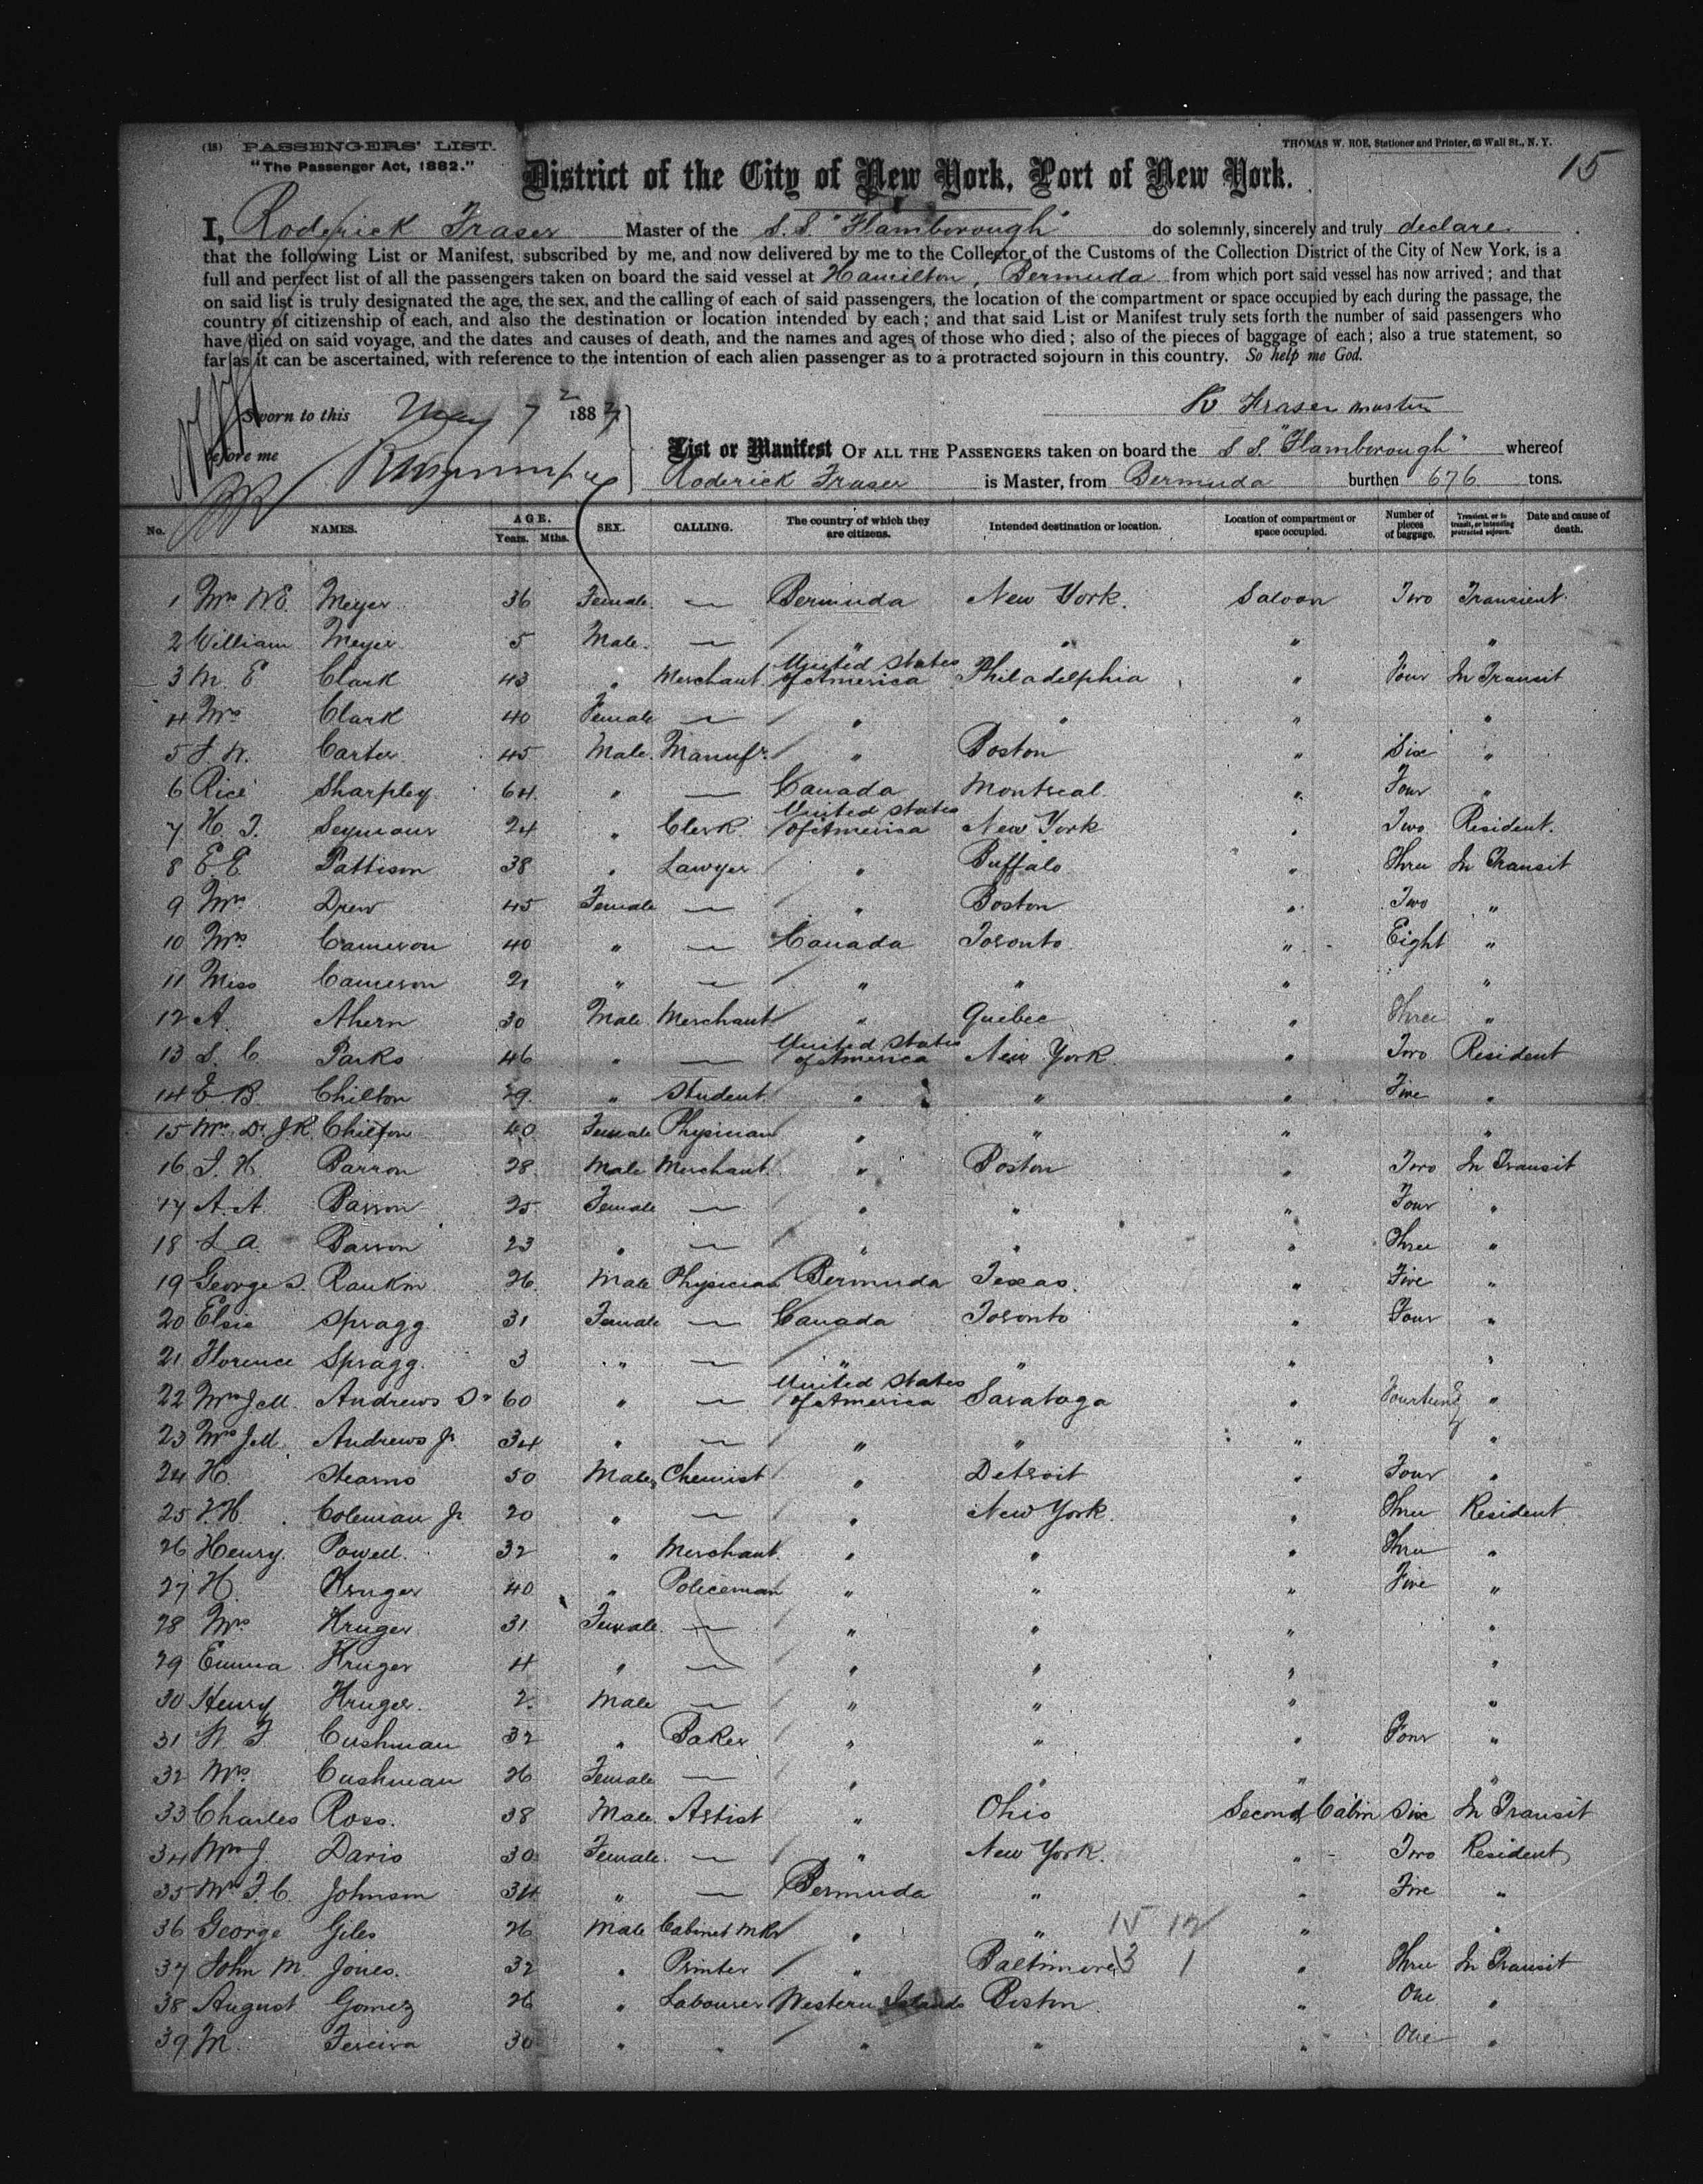 (18) PASSENGERS' LIST.
"The Passenger Act, 1882."
THOMAS W. ROE, Stationer and Printer, 63 Wall St., N. Y.
15
District of the City of New York, Port of New York.
I, Roderick Fraser Master of the S.S. "Flamborough" do solemnly, sincerely and truly declare
that the following List or Manifest, subscribed by me, and now delivered by me to the Collector of the Customs of the Collection District of the City of New York, is a
full and perfect list of all the passengers taken on board the said vessel at Hamilton, Bermuda from which port said vessel has now arrived; and that
on said list is truly designated the age, the sex, and the calling of each of said passengers, the location of the compartment or space occupied by each during the passage, the
country of citizenship of each, and also the destination or location intended by each; and that said List or Manifest truly sets forth the number of said passengers who
have died on said voyage, and the dates and causes of death, and the names and ages of those who died; also of the pieces of baggage of each; also a true statement, so
far as it can be ascertained, with reference to the intention of each alien passenger as to a protracted sojourn in this country. So help me God.
Sworn to this May 7 188
R Fraser master
before me
List or Manifest OF ALL THE PASSENGERS taken on board the S S. "Flamborough" whereof
Roderick Fraser is Master, from Bermuda burthen 676 tons.
No. NAMES. AGE. Years. Mths. SEX. CALLING. The country of which they are citizens. Intended destination or location. Location of compartment or space occupied. Number of pieces of baggage. Transient, or in transit, or intending protracted sojourn. Date and cause of death.
1 Mrs W.E. Meyer 36 Female. — Bermuda New York. Saloon Two Transient.
2 William Meyer 5 Male. — " " " "
3 M. E Clark 43 " Merchant. United States of America Philadelphia " Four In Transit
4 Mrs Clark 40 Female — " " " "
5 J. W. Carter 45 Male. Manufr. " Boston " Six "
6 Rice Sharpley 64 " — Canada Montreal " Four "
7 H. T. Seymour 24 " Clerk United States of America New York " Two Resident.
8 E. E. Pattison 38 " Lawyer " Buffalo " Three In Transit
9 Mrs Drew 45 Female — " Boston " Two "
10 Mrs Cameron 40 " — Canada Toronto " Eight "
11 Miss Cameron 21 " — " " " "
12 A. Ahern 30 Male Merchant " Quebec " Three "
13 S. C. Parks 46 " — United States of America New York " Two Resident
14 E B. Chilton 29. " Student " " " Five "
15 Mrs Dr J R Chilton 40 Female Physician " " " "
16 J. H. Barron 28 Male Merchant. " Boston " Two In Transit
17 A. A. Barron 25 Female — " " " Four "
18 L A. Barron 23 " — " " " Three "
19 George S. Rankin 26 Male Physician Bermuda Texas. " Five "
20 Elsie Spragg 31 Female — Canada Toronto " Four "
21 Florence Spragg. 3 " — " " " "
22 Mrs J M. Andrews Sr 60 " — United States of America Saratoga " Fourteen "
23 Mrs J M. Andrews Jr 34 " — " " " "
24 H. Stearns 50 Male, Chemist " Detroit " Four "
25 V. H. Coleman Jr 20 " — " New York. " Three Resident
26 Henry Powell. 32 " Merchant. " " " Three "
27 H. Kruger 40 " Policeman " " " Five "
28 Mrs Kruger 31 Female. — " " " "
29 Emma Kruger 4 " — " " " "
30 Henry Kruger 2 Male — " " " "
31 W. F. Cushman 32 " Baker " " " Four "
32 Mrs. Cushman 26 Female — " " " "
33 Charles Ross. 38 Male. Artist " Ohio Second Cabin Six In Transit
34 Mrs J. Davis 30 Female. — " New York. " Two Resident
35 Mrs F. C. Johnson 34 " — Bermuda " " Five "
36 George Giles 26 Male Cabinet Mkr " " " "
15 12
37 John M. Jones. 32 " Printer " Baltimore " Three In Transit
3 1
38 August Gomez 26 " Labourer Western Islands Boston. " One "
39 M. Fereira 30 " " " " " One "